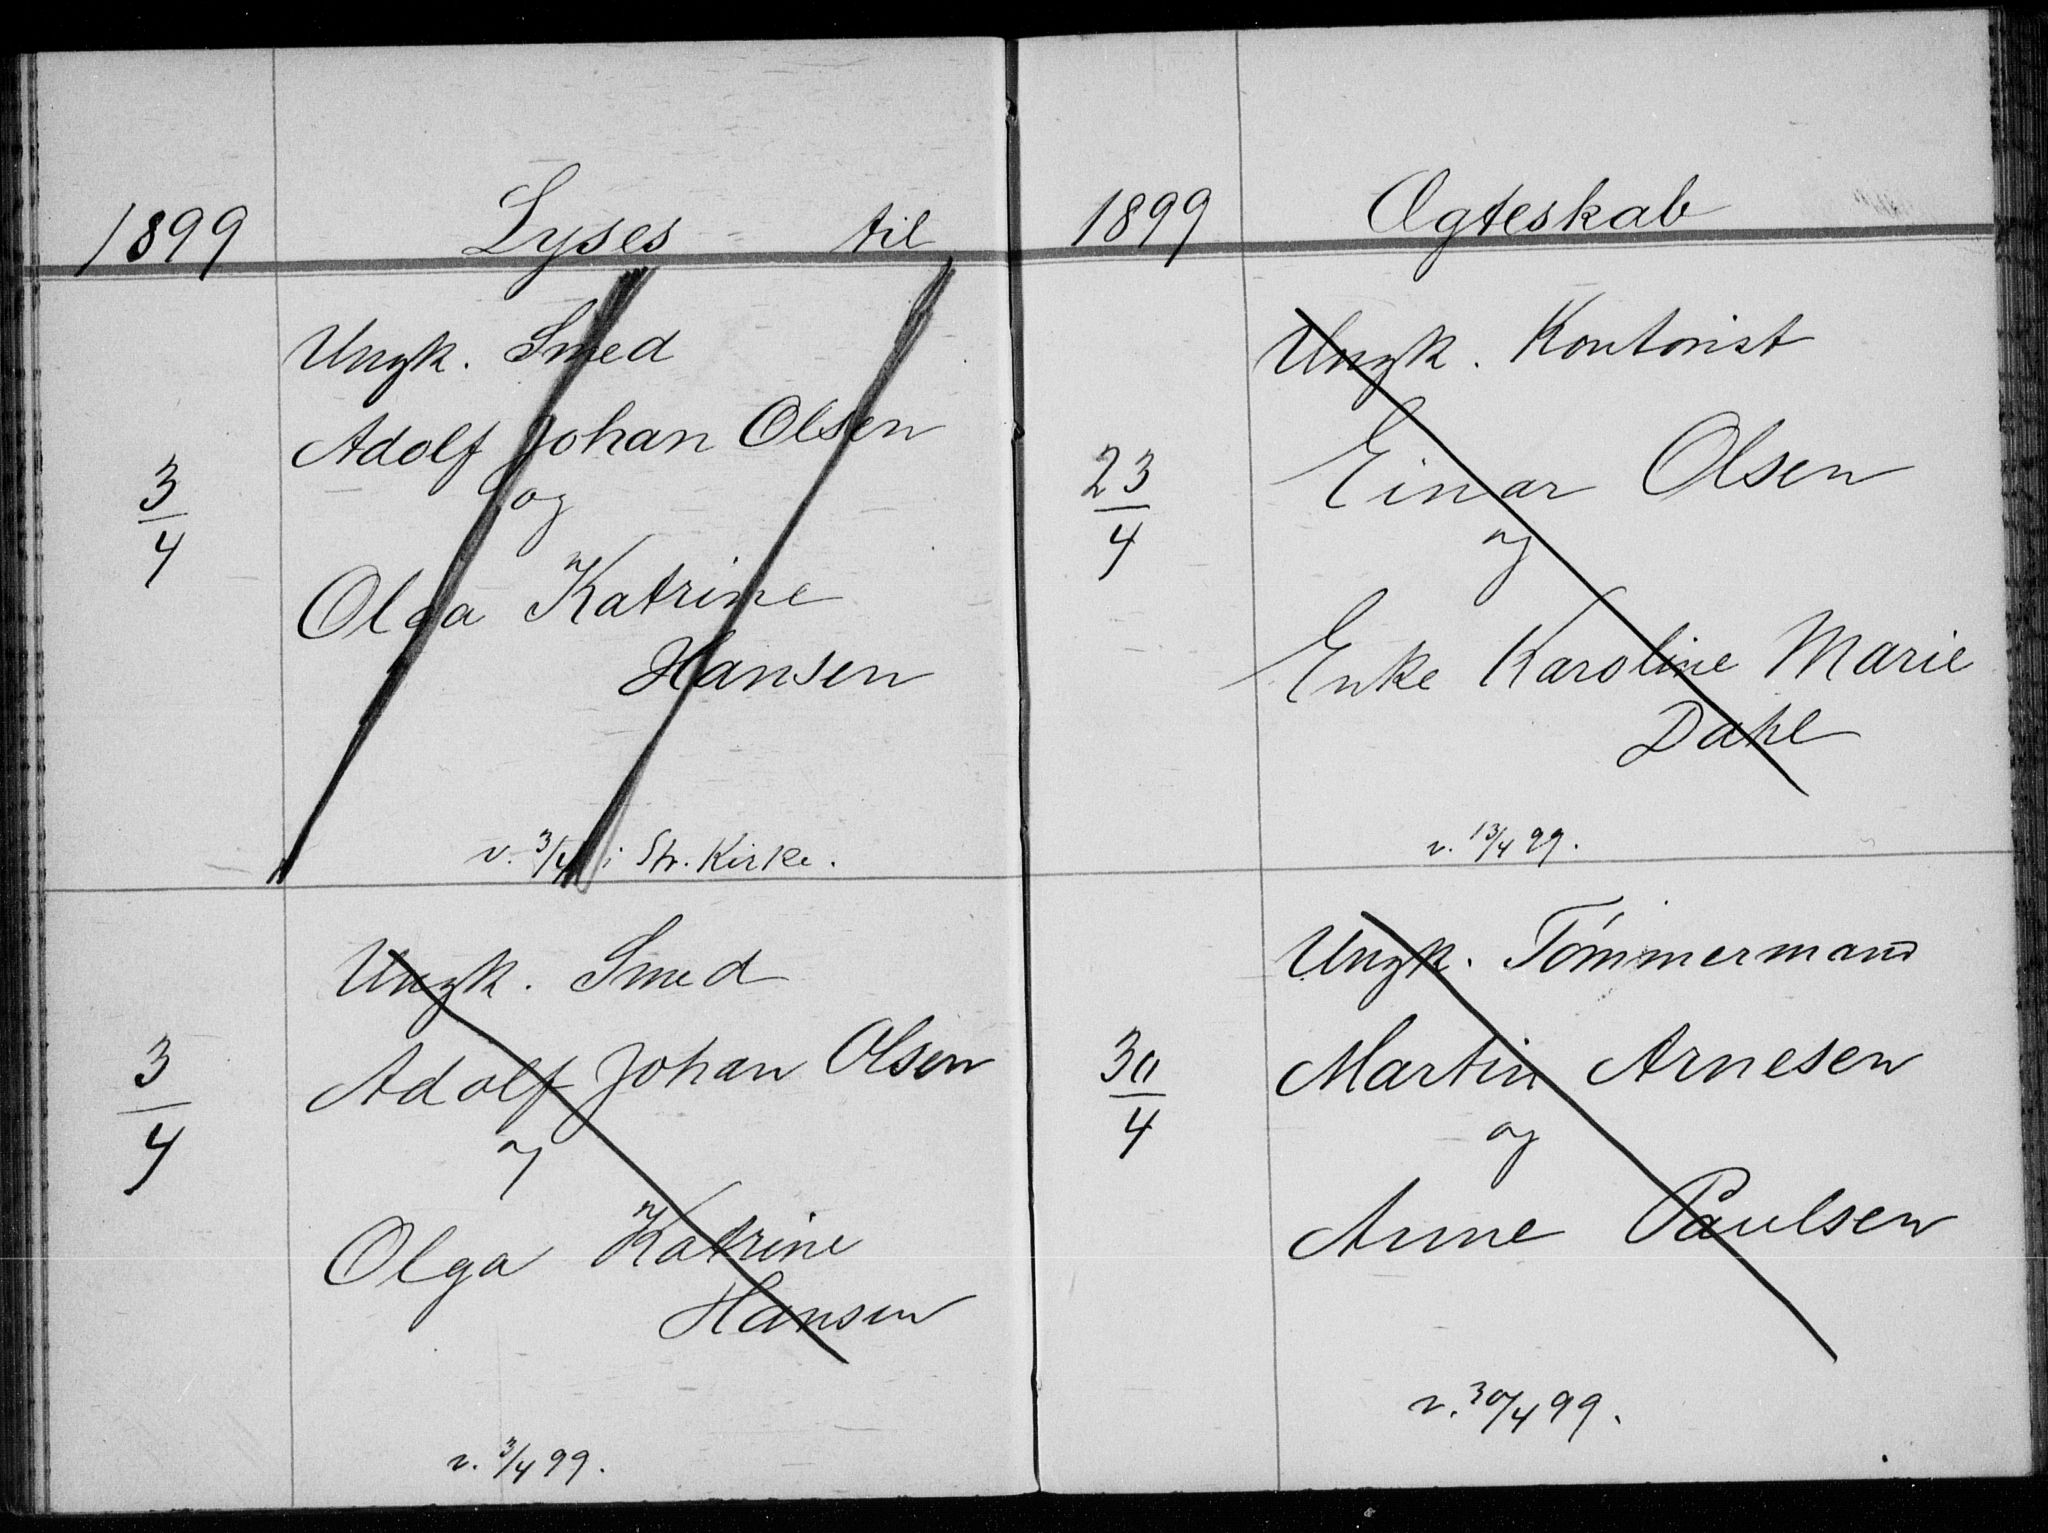 1899 Lyses til
3/4
Ungk. Smed
Adolf Johan Olsen
og
Olga Katrine
Hansen
v. 3/4 i Str. Kirke.
3/4
Ungk. Smed
Adolf Johan Olsen
og
Olga Katrine
Hansen
v. 3/4 99.
1899 Ægteskab
23/4
Ungk. Kontorist
Einar Olsen
og
Enke Karoline Marie
Dahl
v. 13/4 99.
30/4
Ungk. Tømmermand
Martin Arnesen
og
Anne Paulsen
v. 30/4 99.